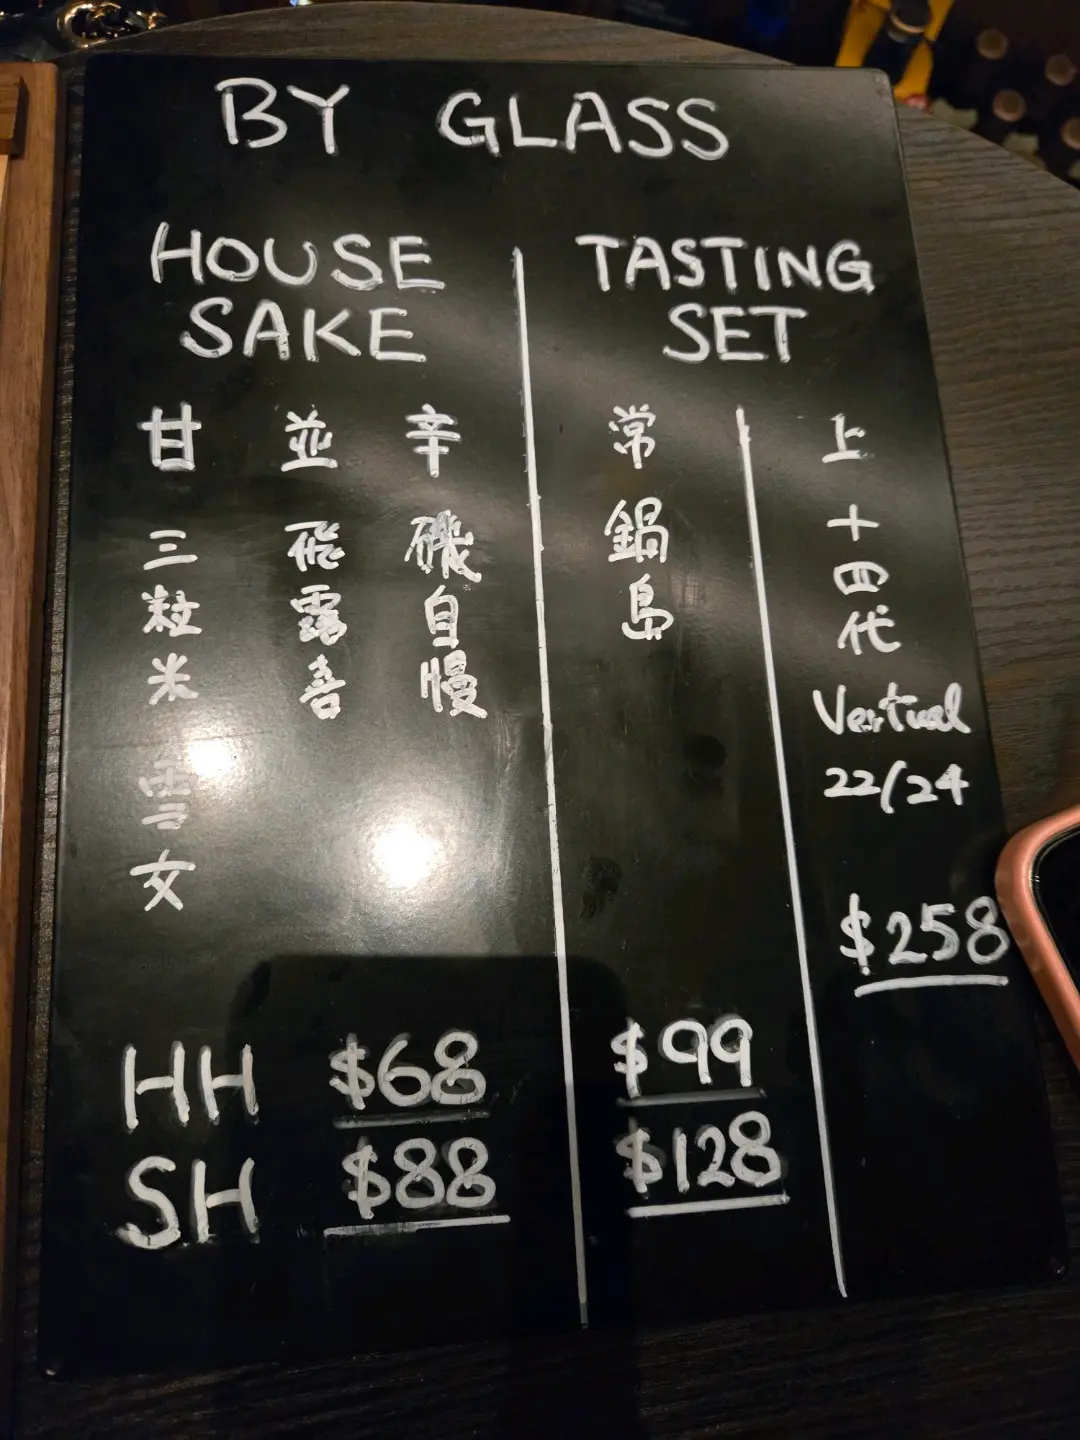 BY GLASS
HOUSE
SAKE
甘
三粒米
雪女
並
飛露喜
辛
磯自慢
HH $68
SH $88
TASTING
SET
常
鍋島
$99
$128
上
十四代
Vertical
22/24
$258